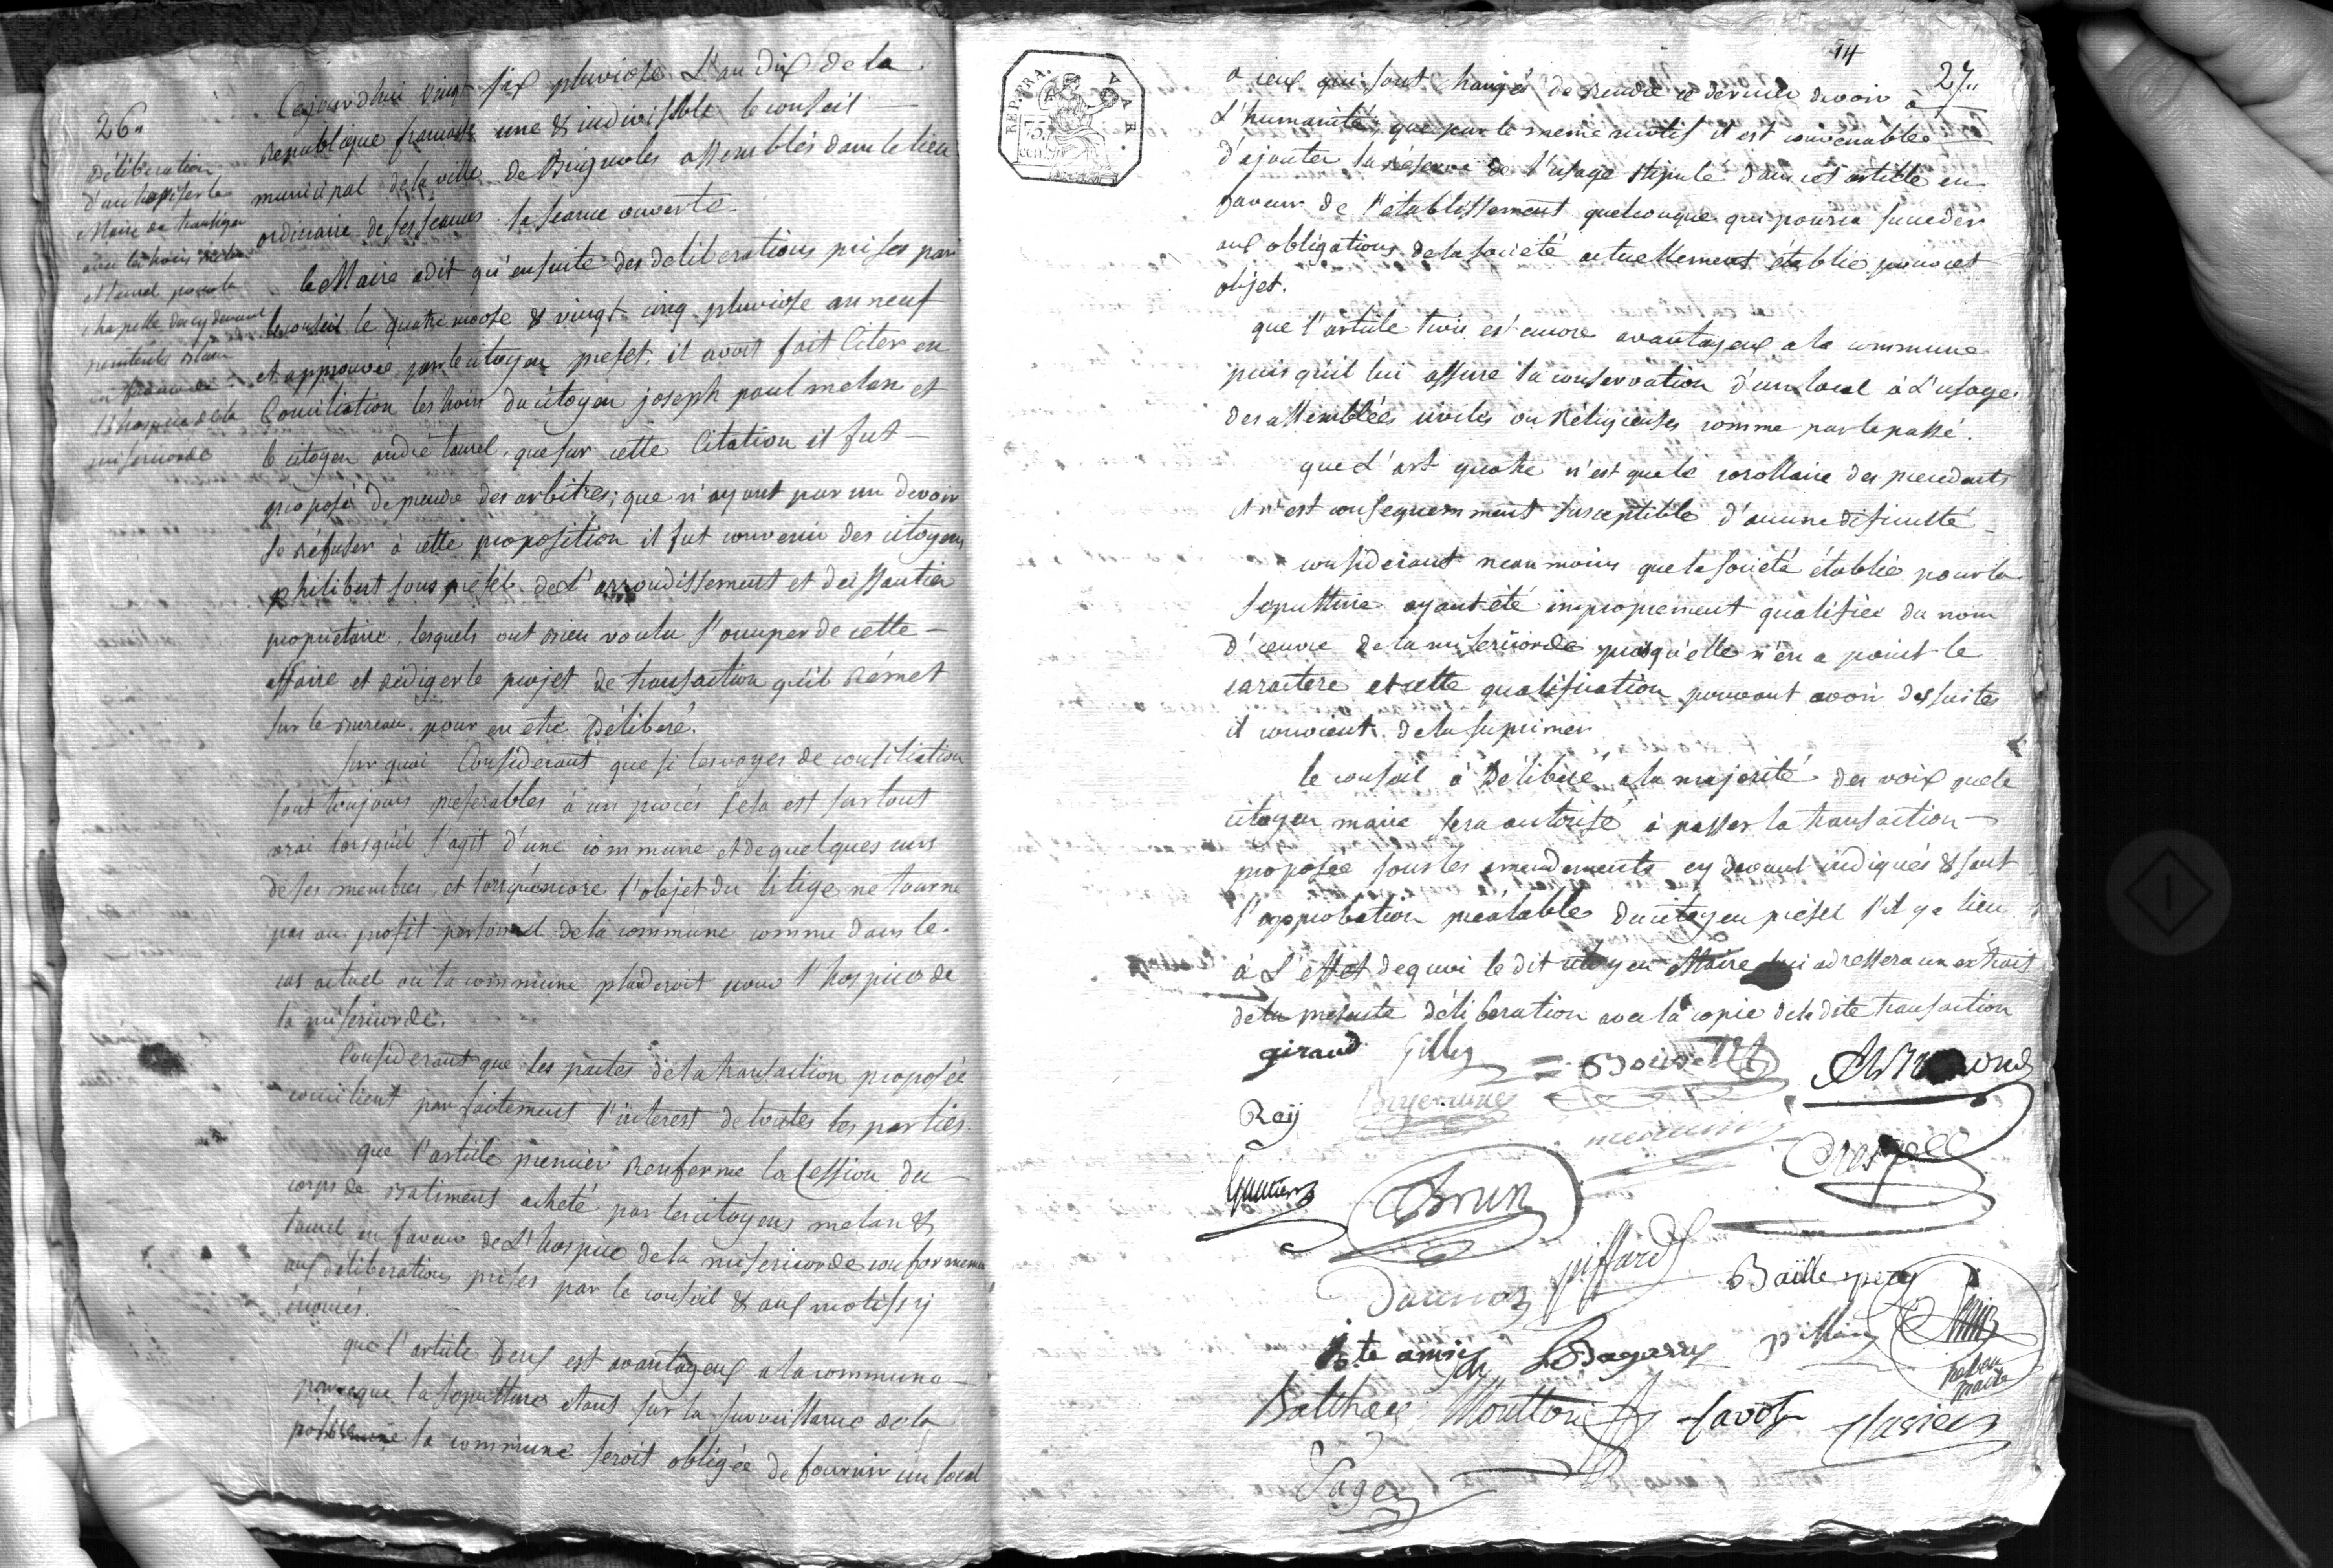 26.
Déliberation
d'authoriser le
Maire de transiger
avec les hoirs melan
et taurel pour la
chapelle des cy devant
penitents blancs
en faveur de
l'hospice de la
misericorde
Cejourd'hui vingt six pluviose L'an dix de la
Republique francaise une & indivisible le conseil
municipal de la ville de Brignoles assemblés dans le lieu
ordinaire de ses seances la seance ouverte.
le Maire a dit qu'ensuite des deliberations prises par
le conseil le quatre nivose & vingt cinq pluviose an neuf
et approuvée par le citoyen prefet, il avoit fait Citer en
Conciliation les hoirs du citoyen joseph paul melan et
le citoyen andré taurel, que sur cette Citation il fut
proposé de prendre des arbitres; que n'ayant par un devoir
se réfuser à cette proposition il fut convenu des citoyens
philibert sous prefet de L'arrondissement et deissautier
proprietaire, lesquels ont bien voulu s'occuper de cette
affaire et rédiger le projet de transaction qu'il Rémet
sur le Bureau pour en etre Déliberé.
sur quoi Considerant que si les voyes de conciliation
sont toujours preferables à un procés Cela est surtout
vrai lorsqu'il s'agit d'une commune et de quelques uns
de ses membres, et lorsqu'encore l'objet du litige ne tourne
pas au profit personnel de la commune comme dans le
cas actuel ou la commune plaideroit pour l'hospice de
la misericorde.
Considerant que les pactes de la transaction proposée
concilient parfaitement l'interest de toutes les parties.
que l'article premier Renferme la Cession du
corps de Batiment acheté par les citoyens melan &
taurel en faveur de L'hospice de la misericorde conformement
aux déliberations prises par le conseil & aux motifs y
énoncés.
que l'article Deux est avantageux a la commune
parceque la sepulture etant sur la surveillance de la
la commune seroit obligée de fournir un local
14
27.
REP. FRA.
75
CENT.
a ceux qui sont chargés de rendre ce dernier devoir à
L'humanité, que par le meme motif il est convenable
d'ajouter la réserve de l'usage stipulé dans cet article en
faveur de l'etablissement quelconque qui pourra succeder
aux obligations de la société actuellement établie pour cet
objet.
que l'article trois est encore avantageux a la commune
puisqu'il lui assure la conservation d'un local à L'usage
des assemblées civiles ou Réligieuses comme par le passé.
que L'art quatre n'est que le corollaire des precedents
et n'est consequemment susceptible d'aucune dificulté
considerant neanmoins que la société établie pour la
sepulture ayant été improprement qualifiée du nom
d'œuvre de la misericorde puisqu'elle n'en a point le
caractere et cette qualification pouvant avoir des suites
il convient de la suprimer
le conseil à Déliberé a la majorité des voix que le
citoyen maire sera autorisé à passer la transaction
proposée sous les amendements cy devant indiqués & sauf
l'approbation préalable du citoyen préfet s'il y a lieu
à L'effet de quoi le dit citoyen Maire lui adressera un extrait
de la presente déliberation avec la copie de la dite transaction
giraud Gilly
Rey
Brun
piffard
Baille
amic Bagarry
maire
Balthar Moutton Lavot